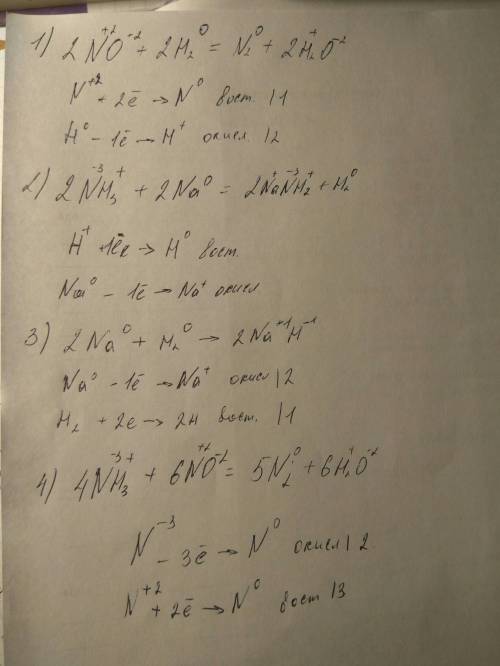 1) 2N⁺²O⁻² + 2H₂⁰ = N₂⁰ + 2H₂⁺O⁻²
N⁺² + 2ē → N⁰ восст. | 1
H⁰ - 1ē → H⁺ окисл. | 2
2) 2N⁻³H₃⁺ + 2Na⁰ = 2Na⁺N⁻³H₂⁺ + H₂⁰
H⁺ + 1ē → H⁰ восст.
Na⁰ - 1ē → Na⁺ окисл
3) 2Na⁰ + H₂⁰ → 2Na⁺¹H⁻¹
Na⁰ - 1ē → Na⁺ окисл | 2
H₂ + 2e → 2H восст. | 1
4) 4N⁻³H₃⁺ + 6N⁺²O⁻² = 5N₂⁰ + 6H₂⁺O⁻²
N⁻³ - 3ē → N⁰ окисл | 2
N⁺² + 2ē → N⁰ восст | 3